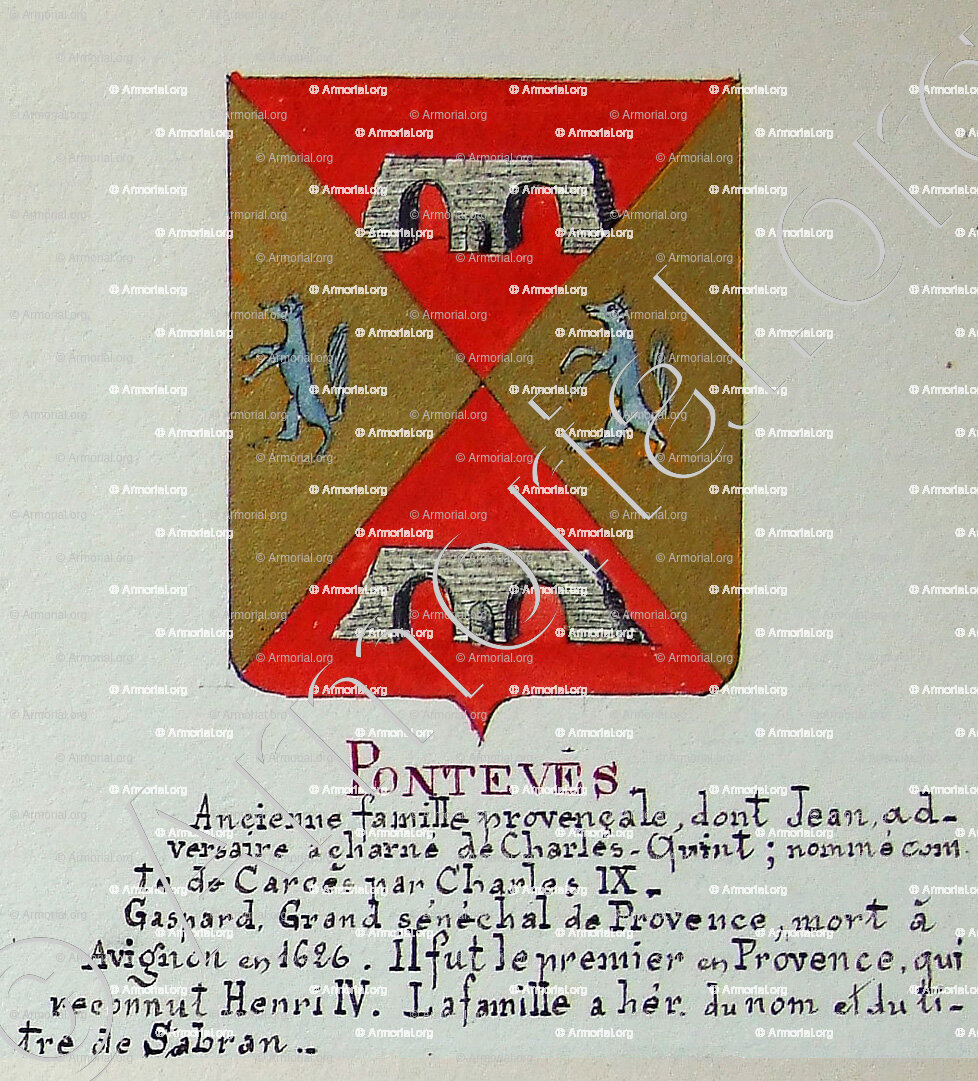 PONTEVÉS
Ancienne famille provençale, dont Jean, ad-
versaire acharné de Charles-Quint ; nommé com
te de Carcès par Charles IX.
Gaspard, Grand sénéchal de Provence, mort à
Avignon en 1626. Il fut le premier en Provence, qui
reconnut Henri IV. La famille a hér. du nom et du ti-
tre de Sabran..
© Armorial.org